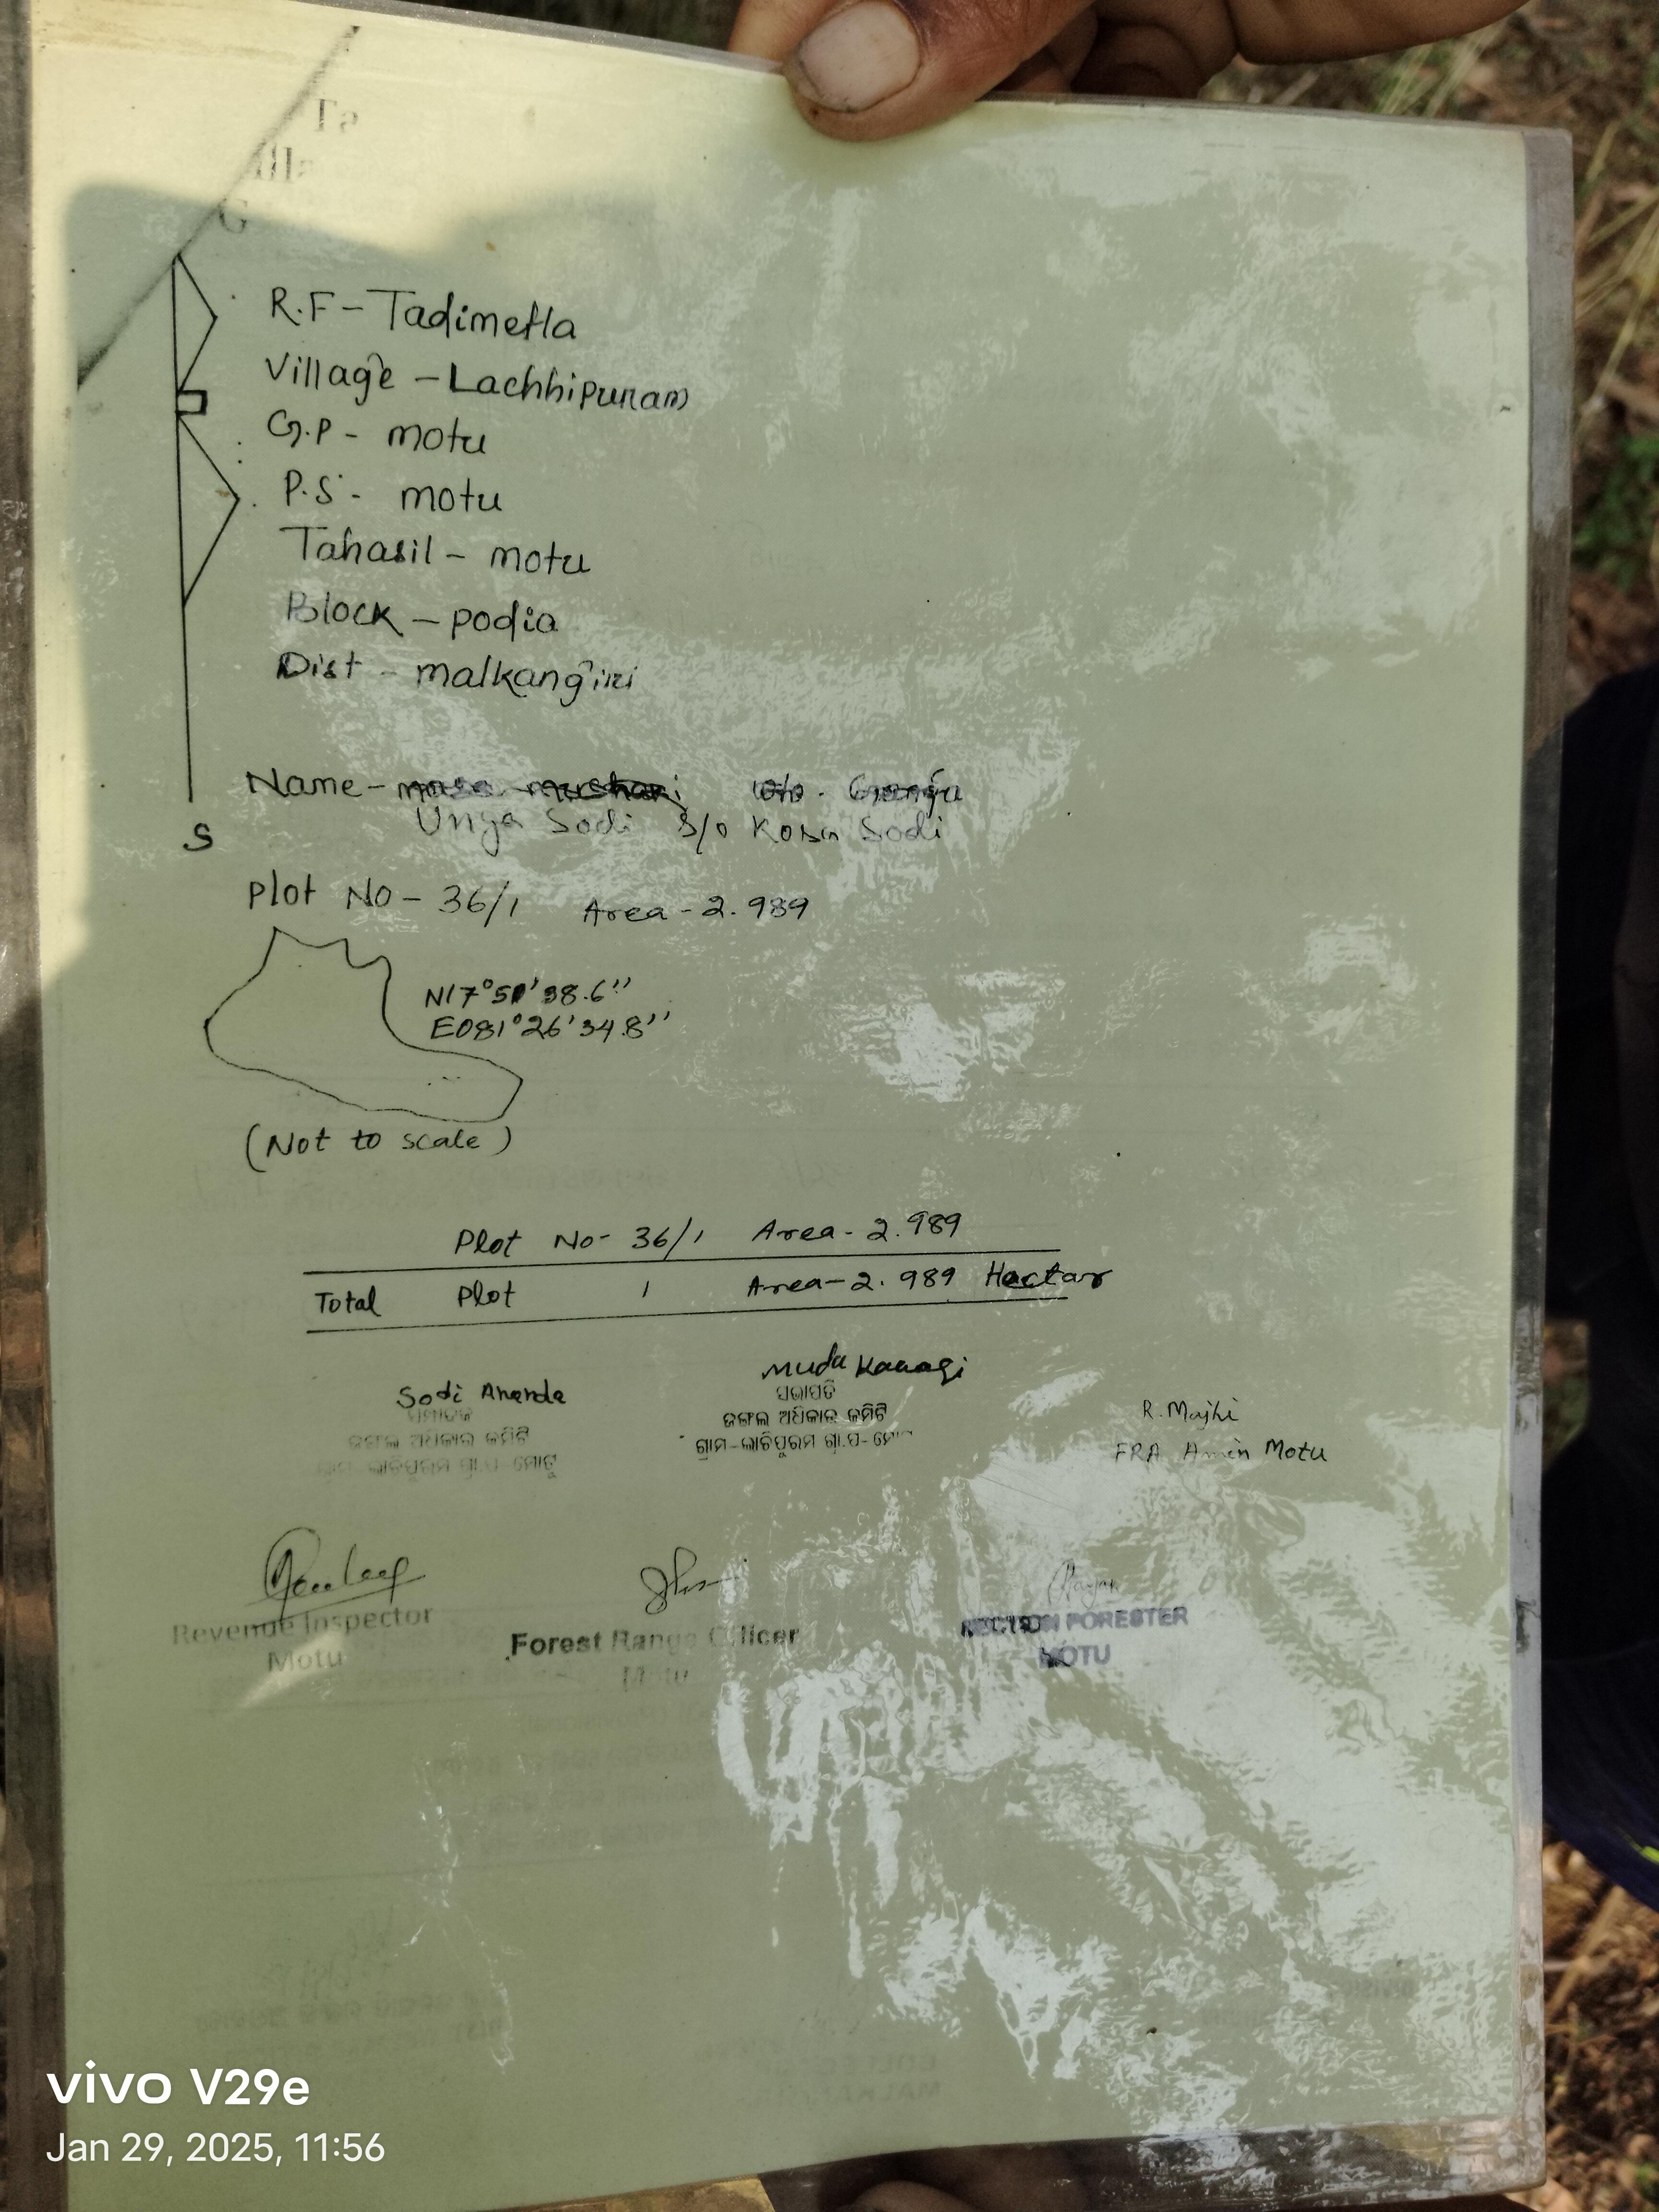 R.F - Tadimetla
Village - Lachhipuram
G.P - motu
P.S - motu
Tahasil - motu
Block - podia
Dist - malkangiri
Name -
Unga Sodi S/o Kosa Sodi
S
Plot No - 36/1 Area - 2.989
N17°51'38.6''
E081°26'34.8''
(Not to scale)
Plot No - 36/1 Area - 2.989
Total Plot 1 Area - 2.989 Hectar
Sodi Ananda
Muda
ସଭାପତି
ଜଙ୍ଗଲ ଅଧିକାର କମିଟି
ଗ୍ରାମ-ଲାଚିପୁରମ ଗ୍ରା.ପ-
ଜଙ୍ଗଲ ଅଧିକାର କମିଟି
ଲାଚିପୁରମ ଗ୍ରା.ପ-ମୋଟୁ
R. Majhi
FRA Amin Motu
Revenue Inspector
Motu
Forest Range Officer
Motu
SECTION FORESTER
MOTU
vivo V29e
Jan 29, 2025, 11:56